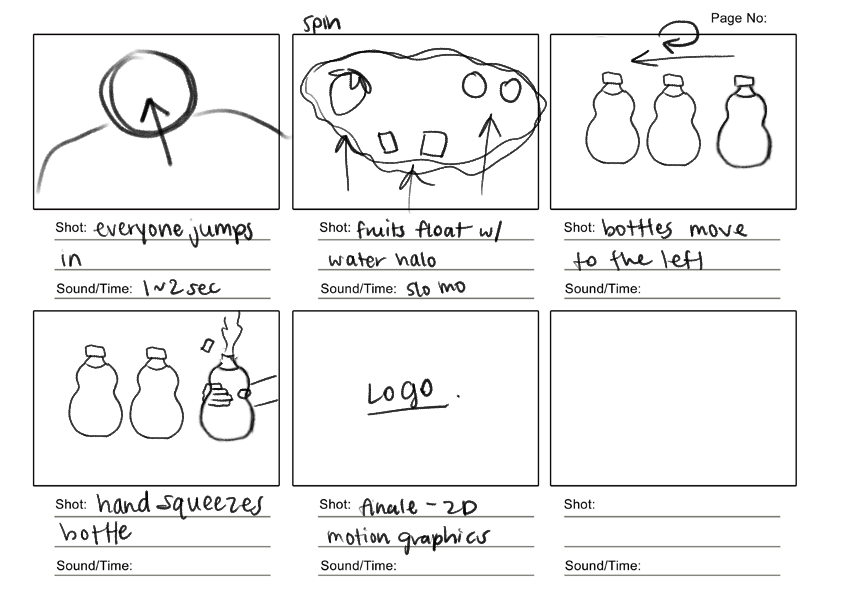 Page No:
spin
Shot: everyone jumps
in
Sound/Time: 1~2 sec
Shot: fruits float w/
water halo
Sound/Time: slo mo
Shot: bottles move
to the left
Sound/Time:
Logo.
Shot: hand squeezes
bottle
Sound/Time:
Shot: finale - 2D
motion graphics
Sound/Time:
Shot:
Sound/Time: